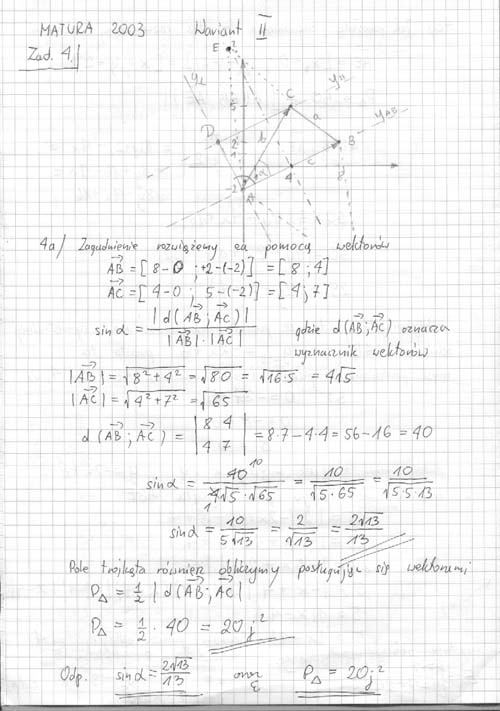 MATURA 2003 Wariant II
Zad. 4.
E 7
y⊥ y||
5 C
D b a yAB
2 B
1
α c 4 8
-2 A
4a/ Zagadnienie rozwiążemy za pomocą wektorów
AB→ = [8-0 ; +2-(-2)] = [8 ; 4]
AC→ = [4-0 ; 5-(-2)] = [4 ; 7]
sin α = |d(AB→ ; AC→)| / |AB→| · |AC→| gdzie d(AB→ ; AC→) oznacza
wyznacznik wektorów
|AB→| = √(8² + 4²) = √80 = √(16·5) = 4√5
|AC→| = √(4² + 7²) = √65
d(AB→ ; AC→) = |8 4 / 4 7| = 8·7 - 4·4 = 56 - 16 = 40
sin α = 40 10 / 1 4√5 · √65 = 10 / √(5·65) = 10 / √(5·5·13)
sin α = 10 / 5√13 = 2 / √13 = 2√13 / 13
Pole trójkąta również obliczymy posługując się wektorami
P△ = 1/2 |d(AB→ ; AC→)|
P△ = 1/2 · 40 = 20 j²
Odp. sin α = 2√13 / 13 oraz P△ = 20 j²